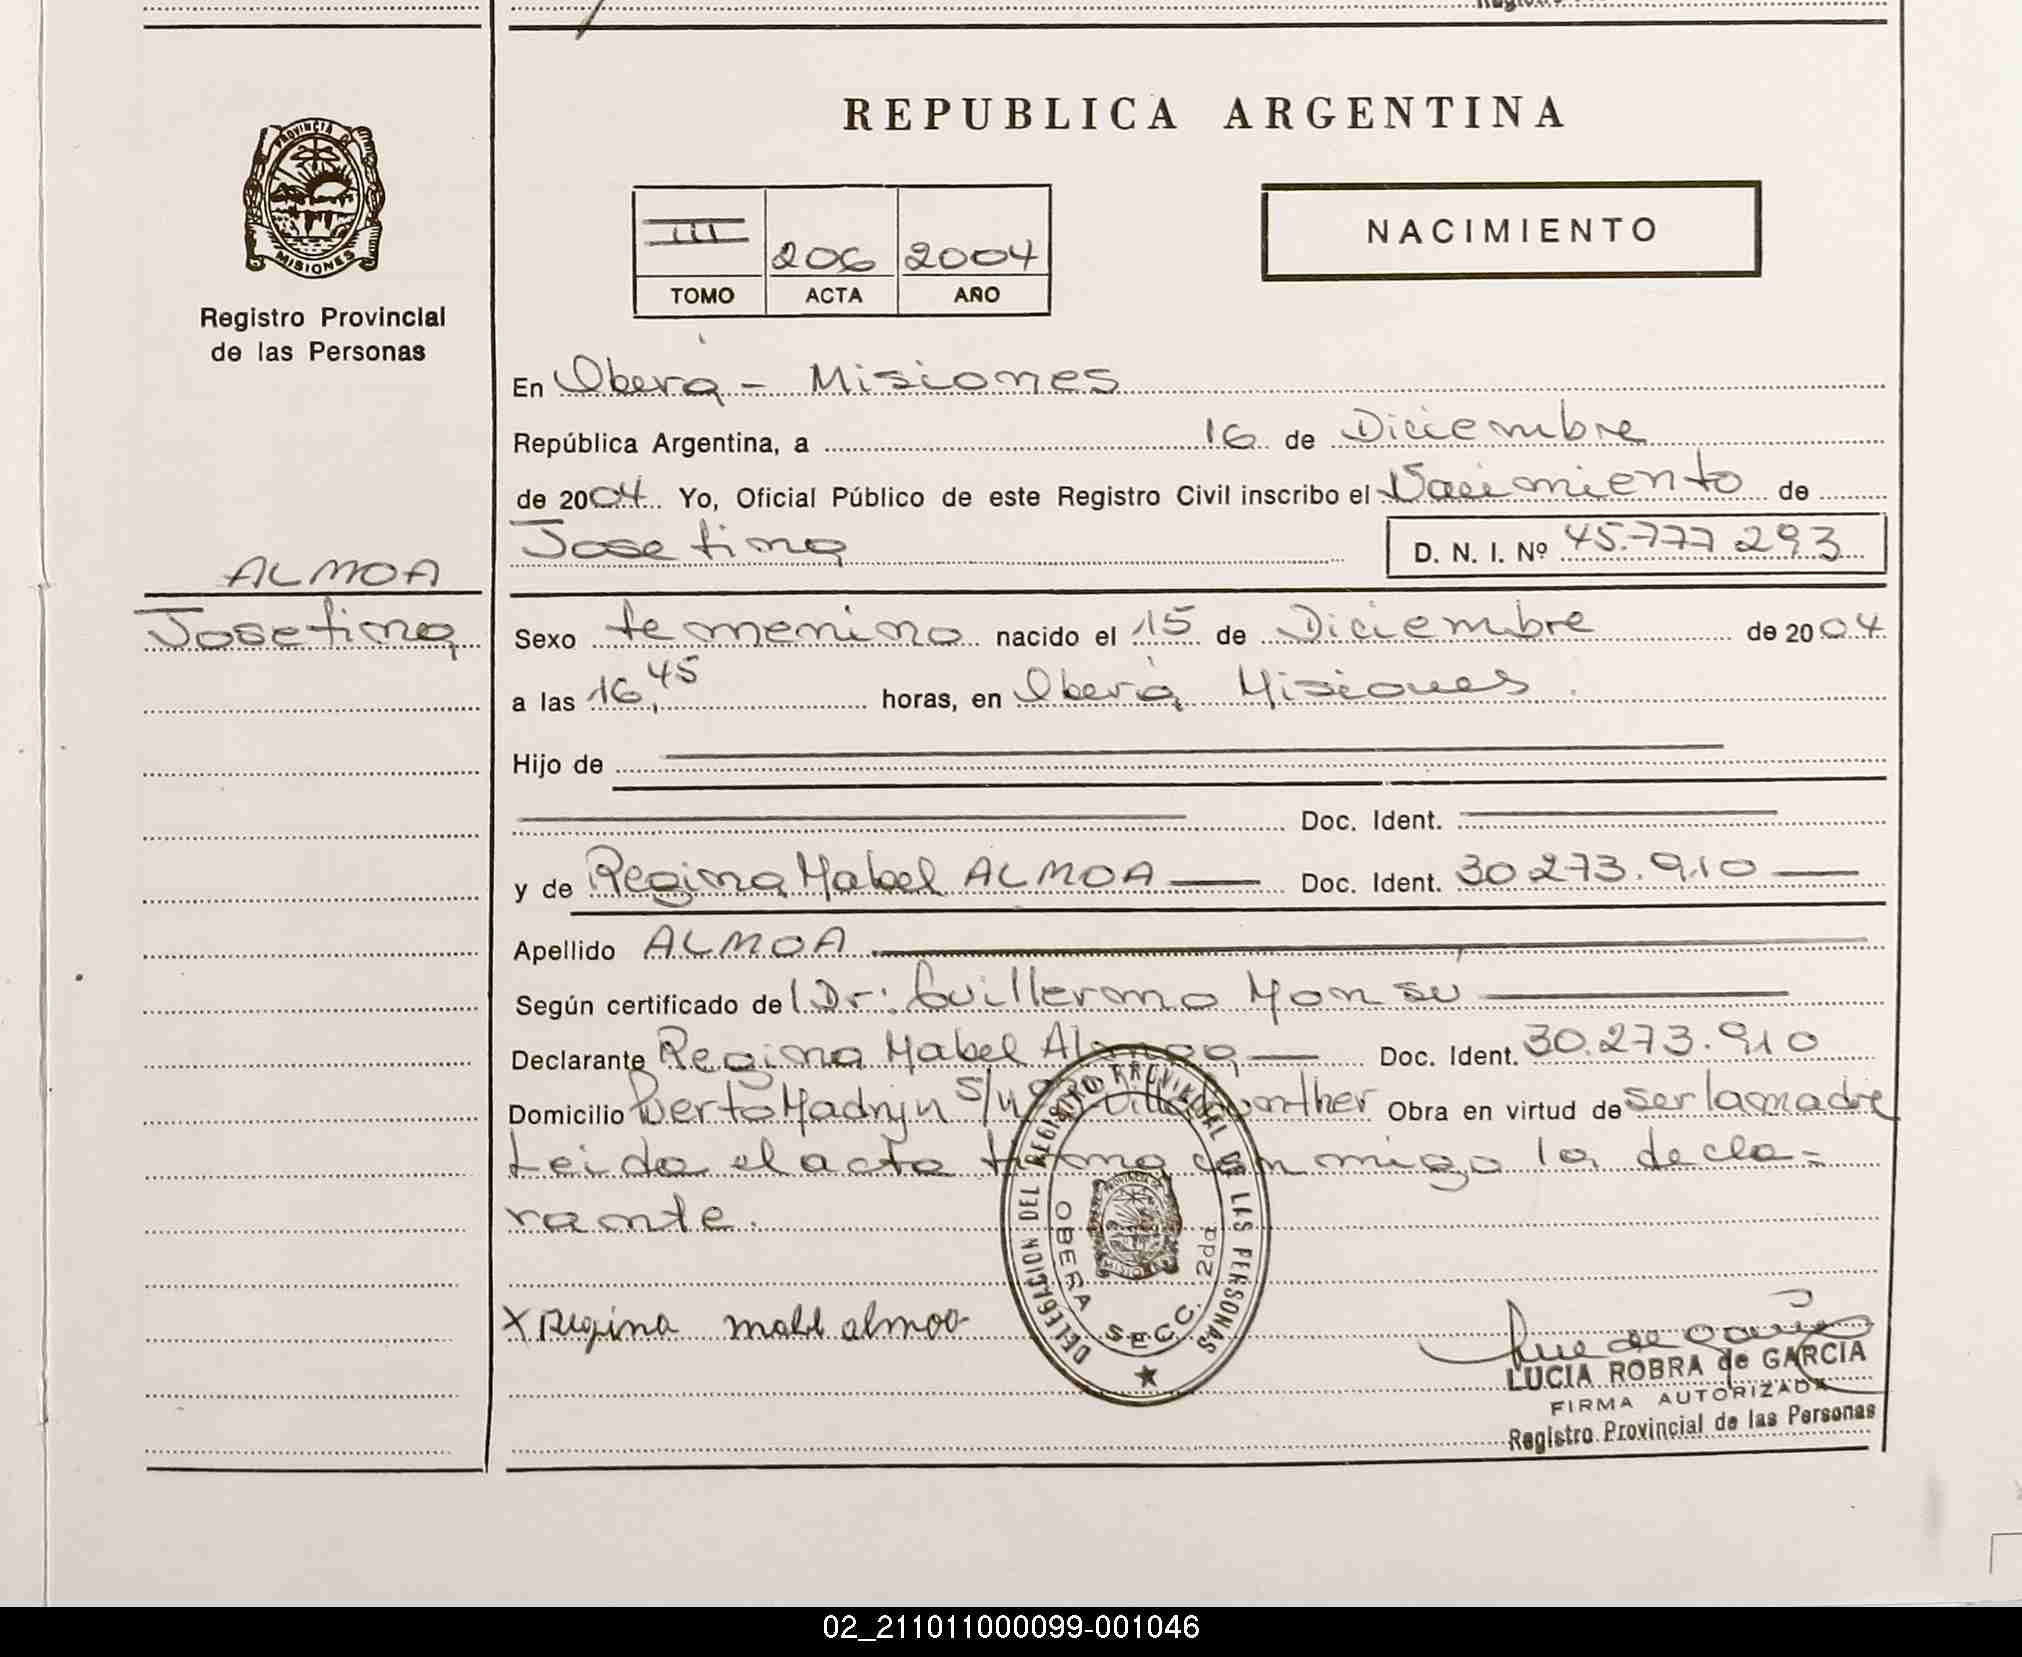 REPUBLICA ARGENTINA
PROVINCIA DE
MISIONES
Registro Provincial
de las Personas
III 206 2004
TOMO ACTA AÑO
NACIMIENTO
En Oberá - Misiones
República Argentina, a 16 de Diciembre
de 2004 Yo, Oficial Público de este Registro Civil inscribo el Nacimiento de
Josefina D. N. I. Nº 45.777 293
ALMOA
Josefina
Sexo femenino nacido el 15 de Diciembre de 2004
a las 16,45 horas, en Oberá, Misiones.
Hijo de
Doc. Ident.
y de Regina Mabel ALMOA Doc. Ident. 30 273.910
Apellido ALMOA
Según certificado de Dr: Guillermo Monsú
Declarante Regina Mabel Almoa Doc. Ident. 30.273.910
Domicilio Puerto Madryn s/nº Obra en virtud de ser la madre
Leida el acta firma conmigo la decla-
rante.
DELEGACION DEL REGISTRO PROVINCIAL DE LAS PERSONAS
OBERA SECC. 2da
X Regina mabel almoa
LUCIA ROBRA de GARCIA
FIRMA AUTORIZADA
Registro Provincial de las Personas
02_211011000099-001046